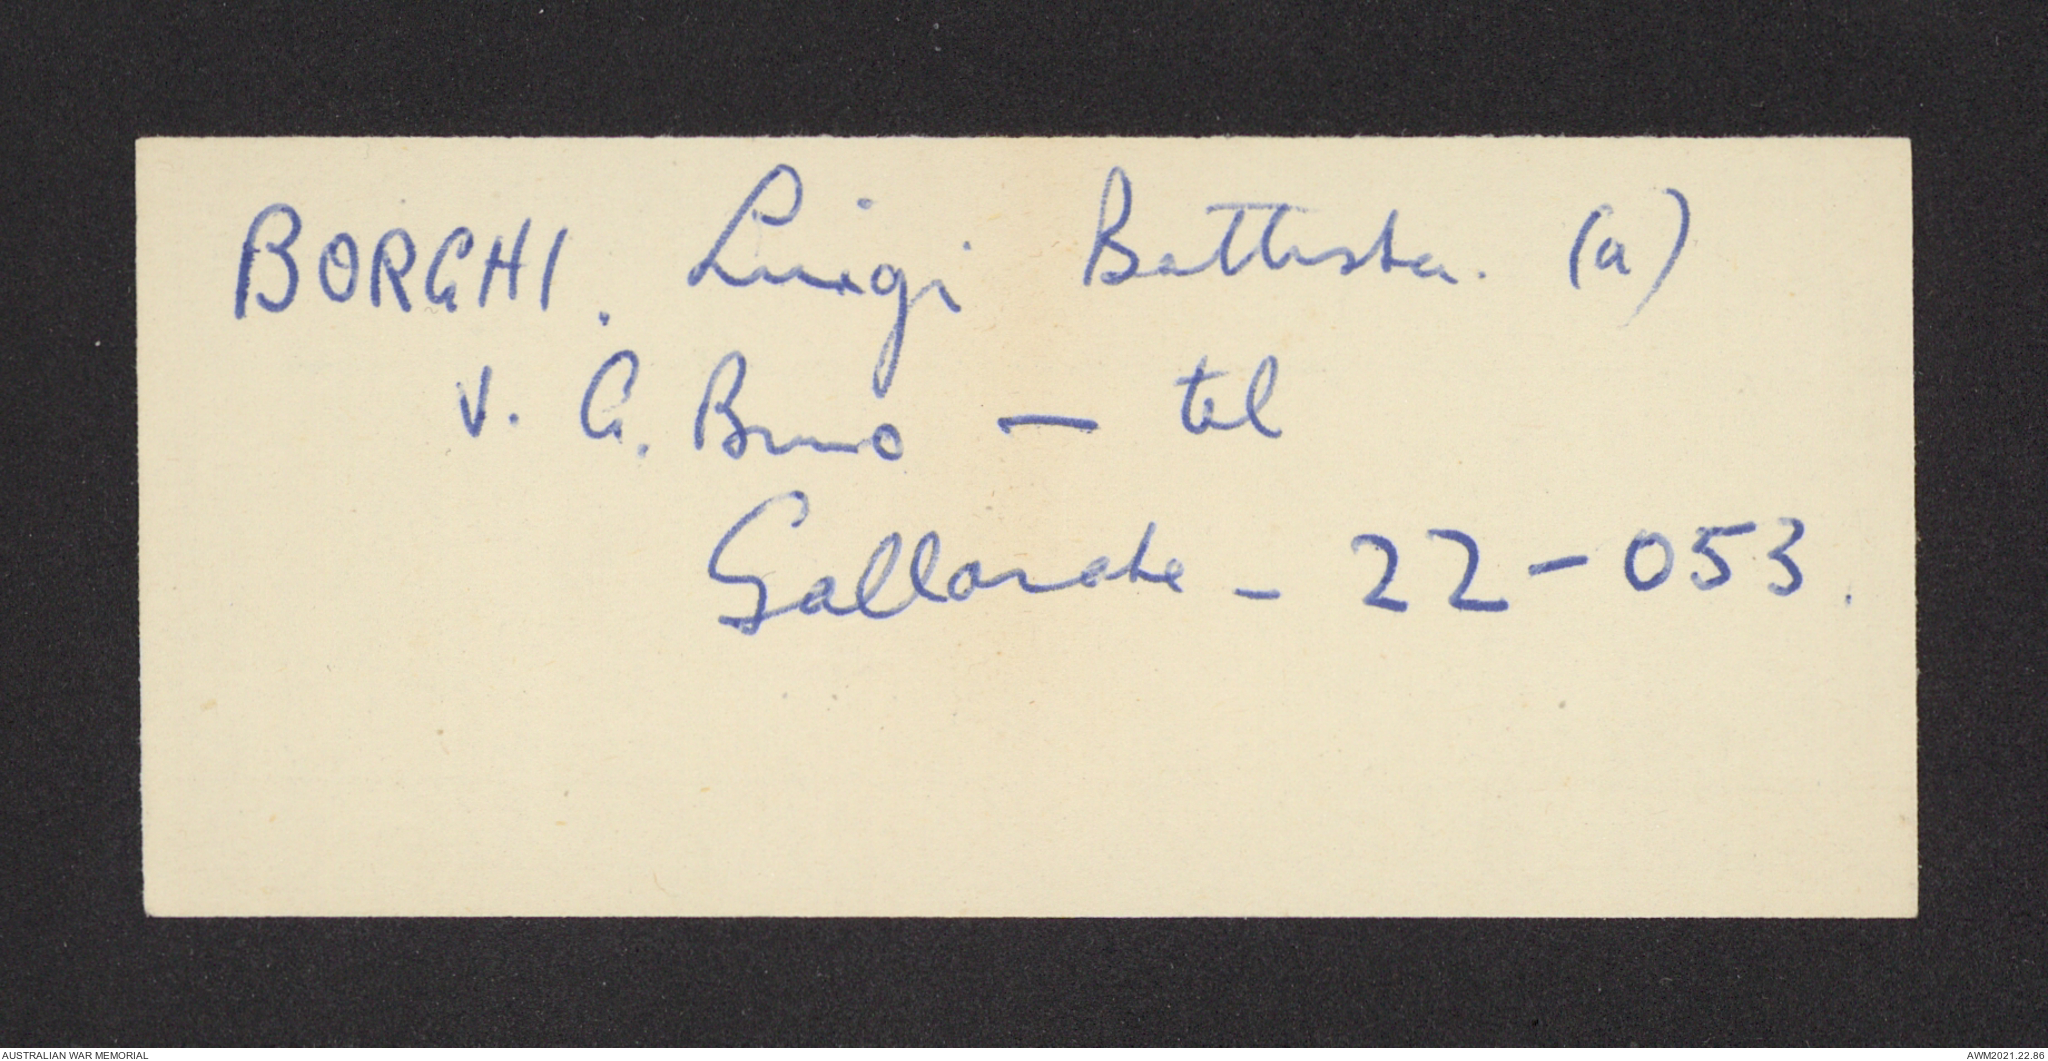 BORGHI. Luigi Battista. (a)
V. G. Bruno — tel
Gallarate - 22-053.
AUSTRALIAN WAR MEMORIAL
AWM2021.22.86